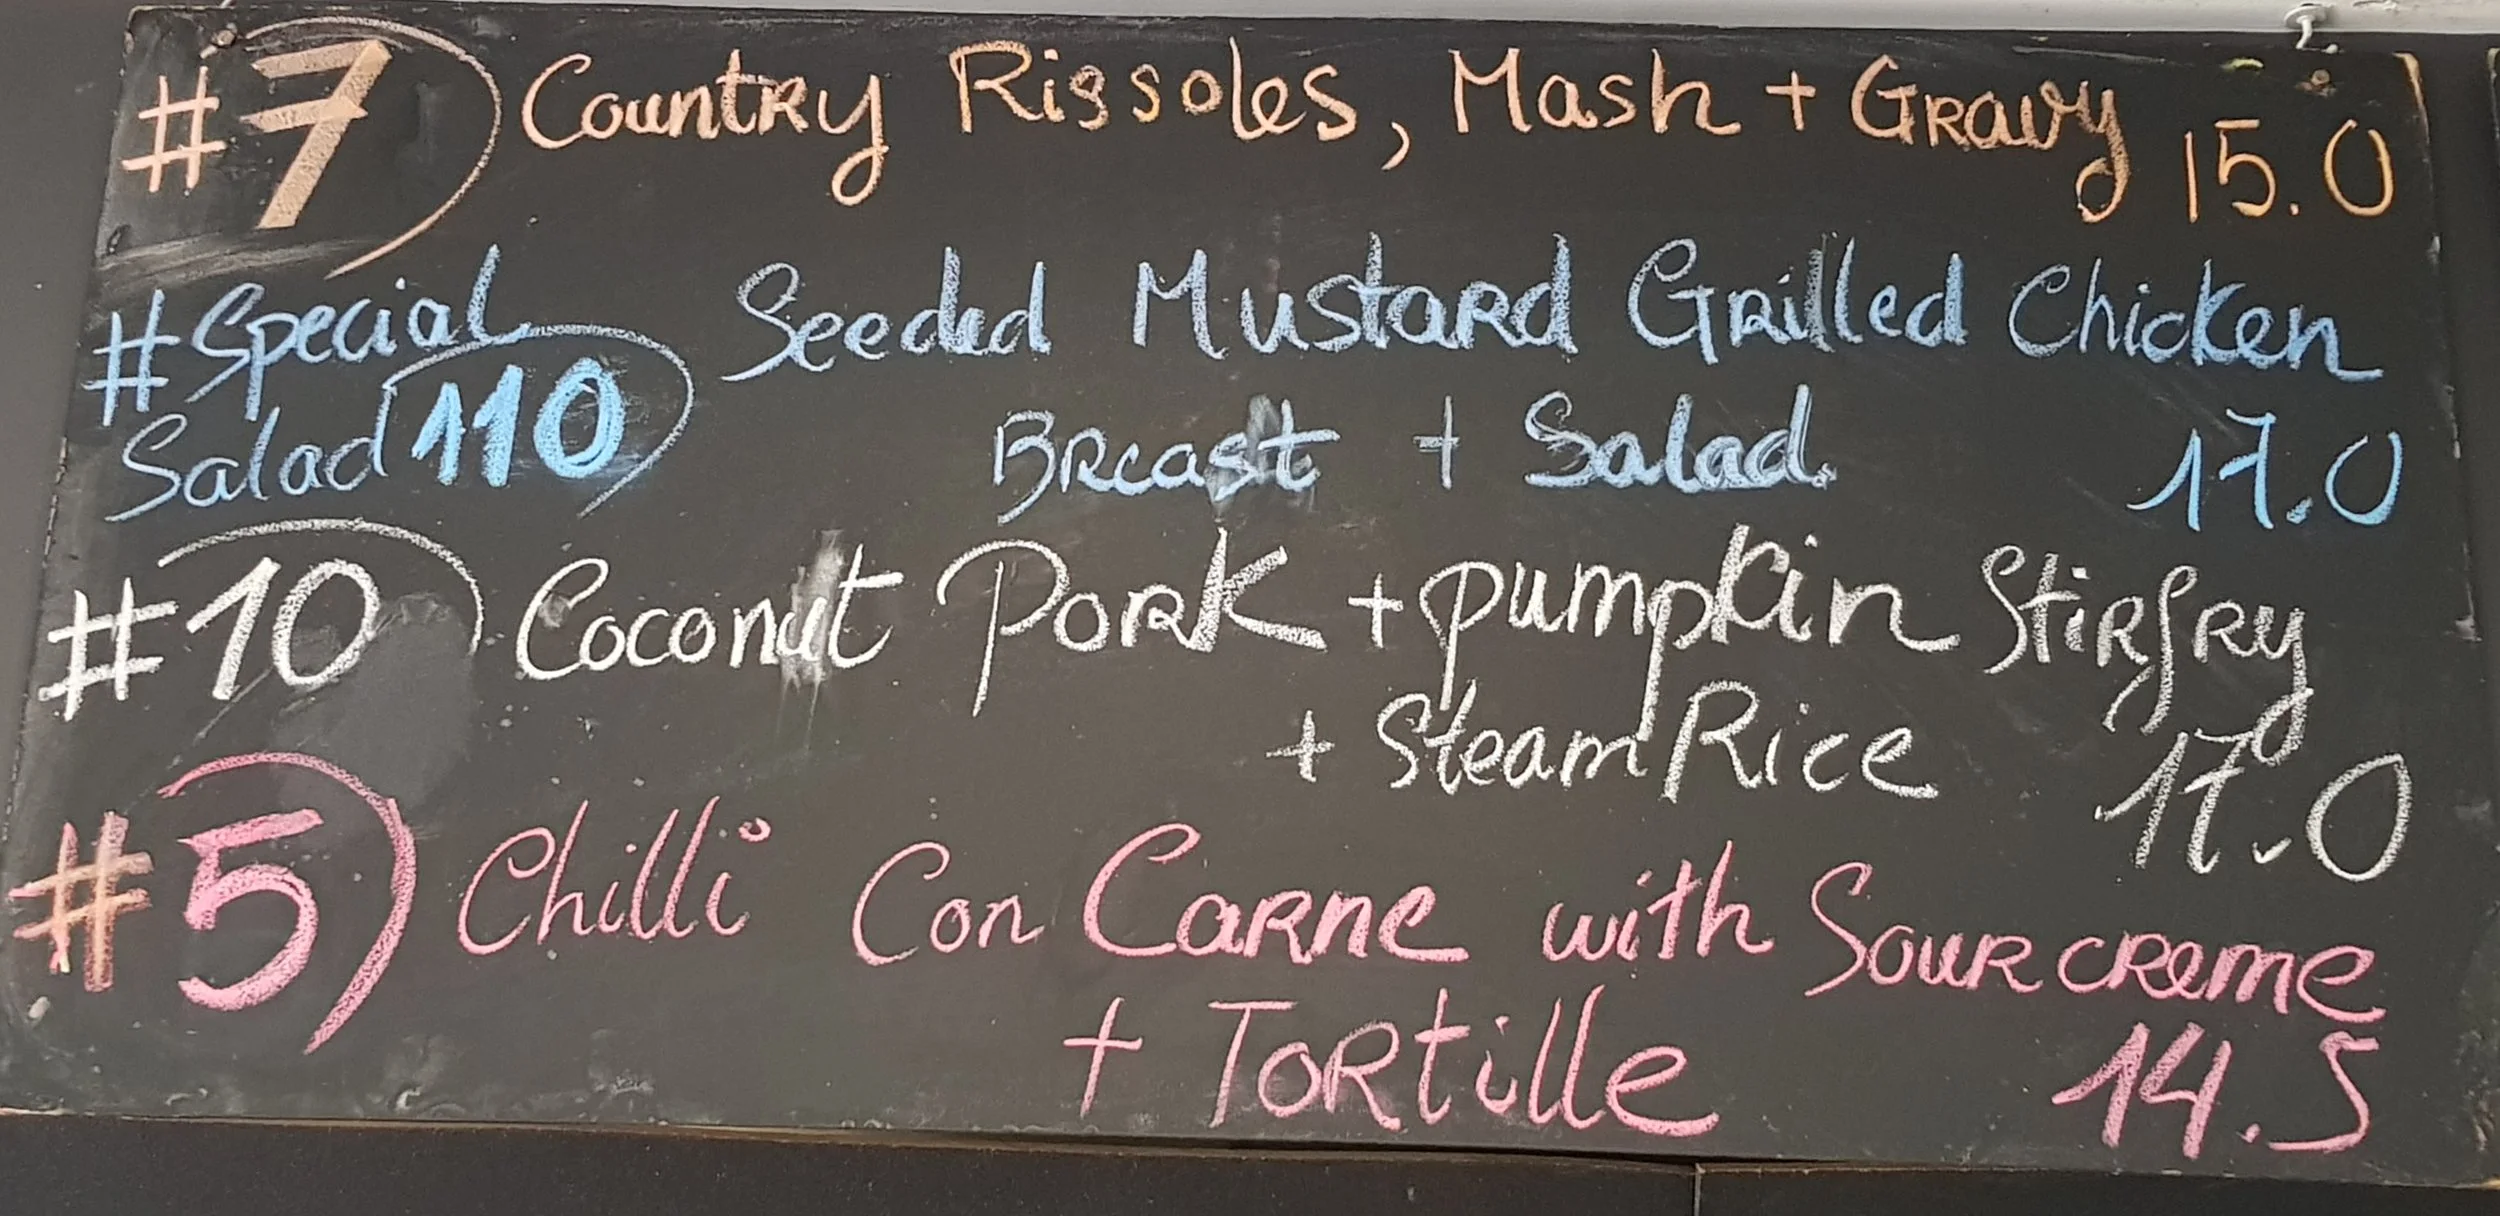 #7 Country Rissoles, Mash + Gravy 15.0
#Special Seeded Mustard Grilled Chicken
Salad 110 Breast + Salad. 17.0
#10 Coconut Pork + pumpkin Stirfry
+ Steam Rice 17.0
#5 Chilli Con Carne with Sour creme
+ Tortille 14.5